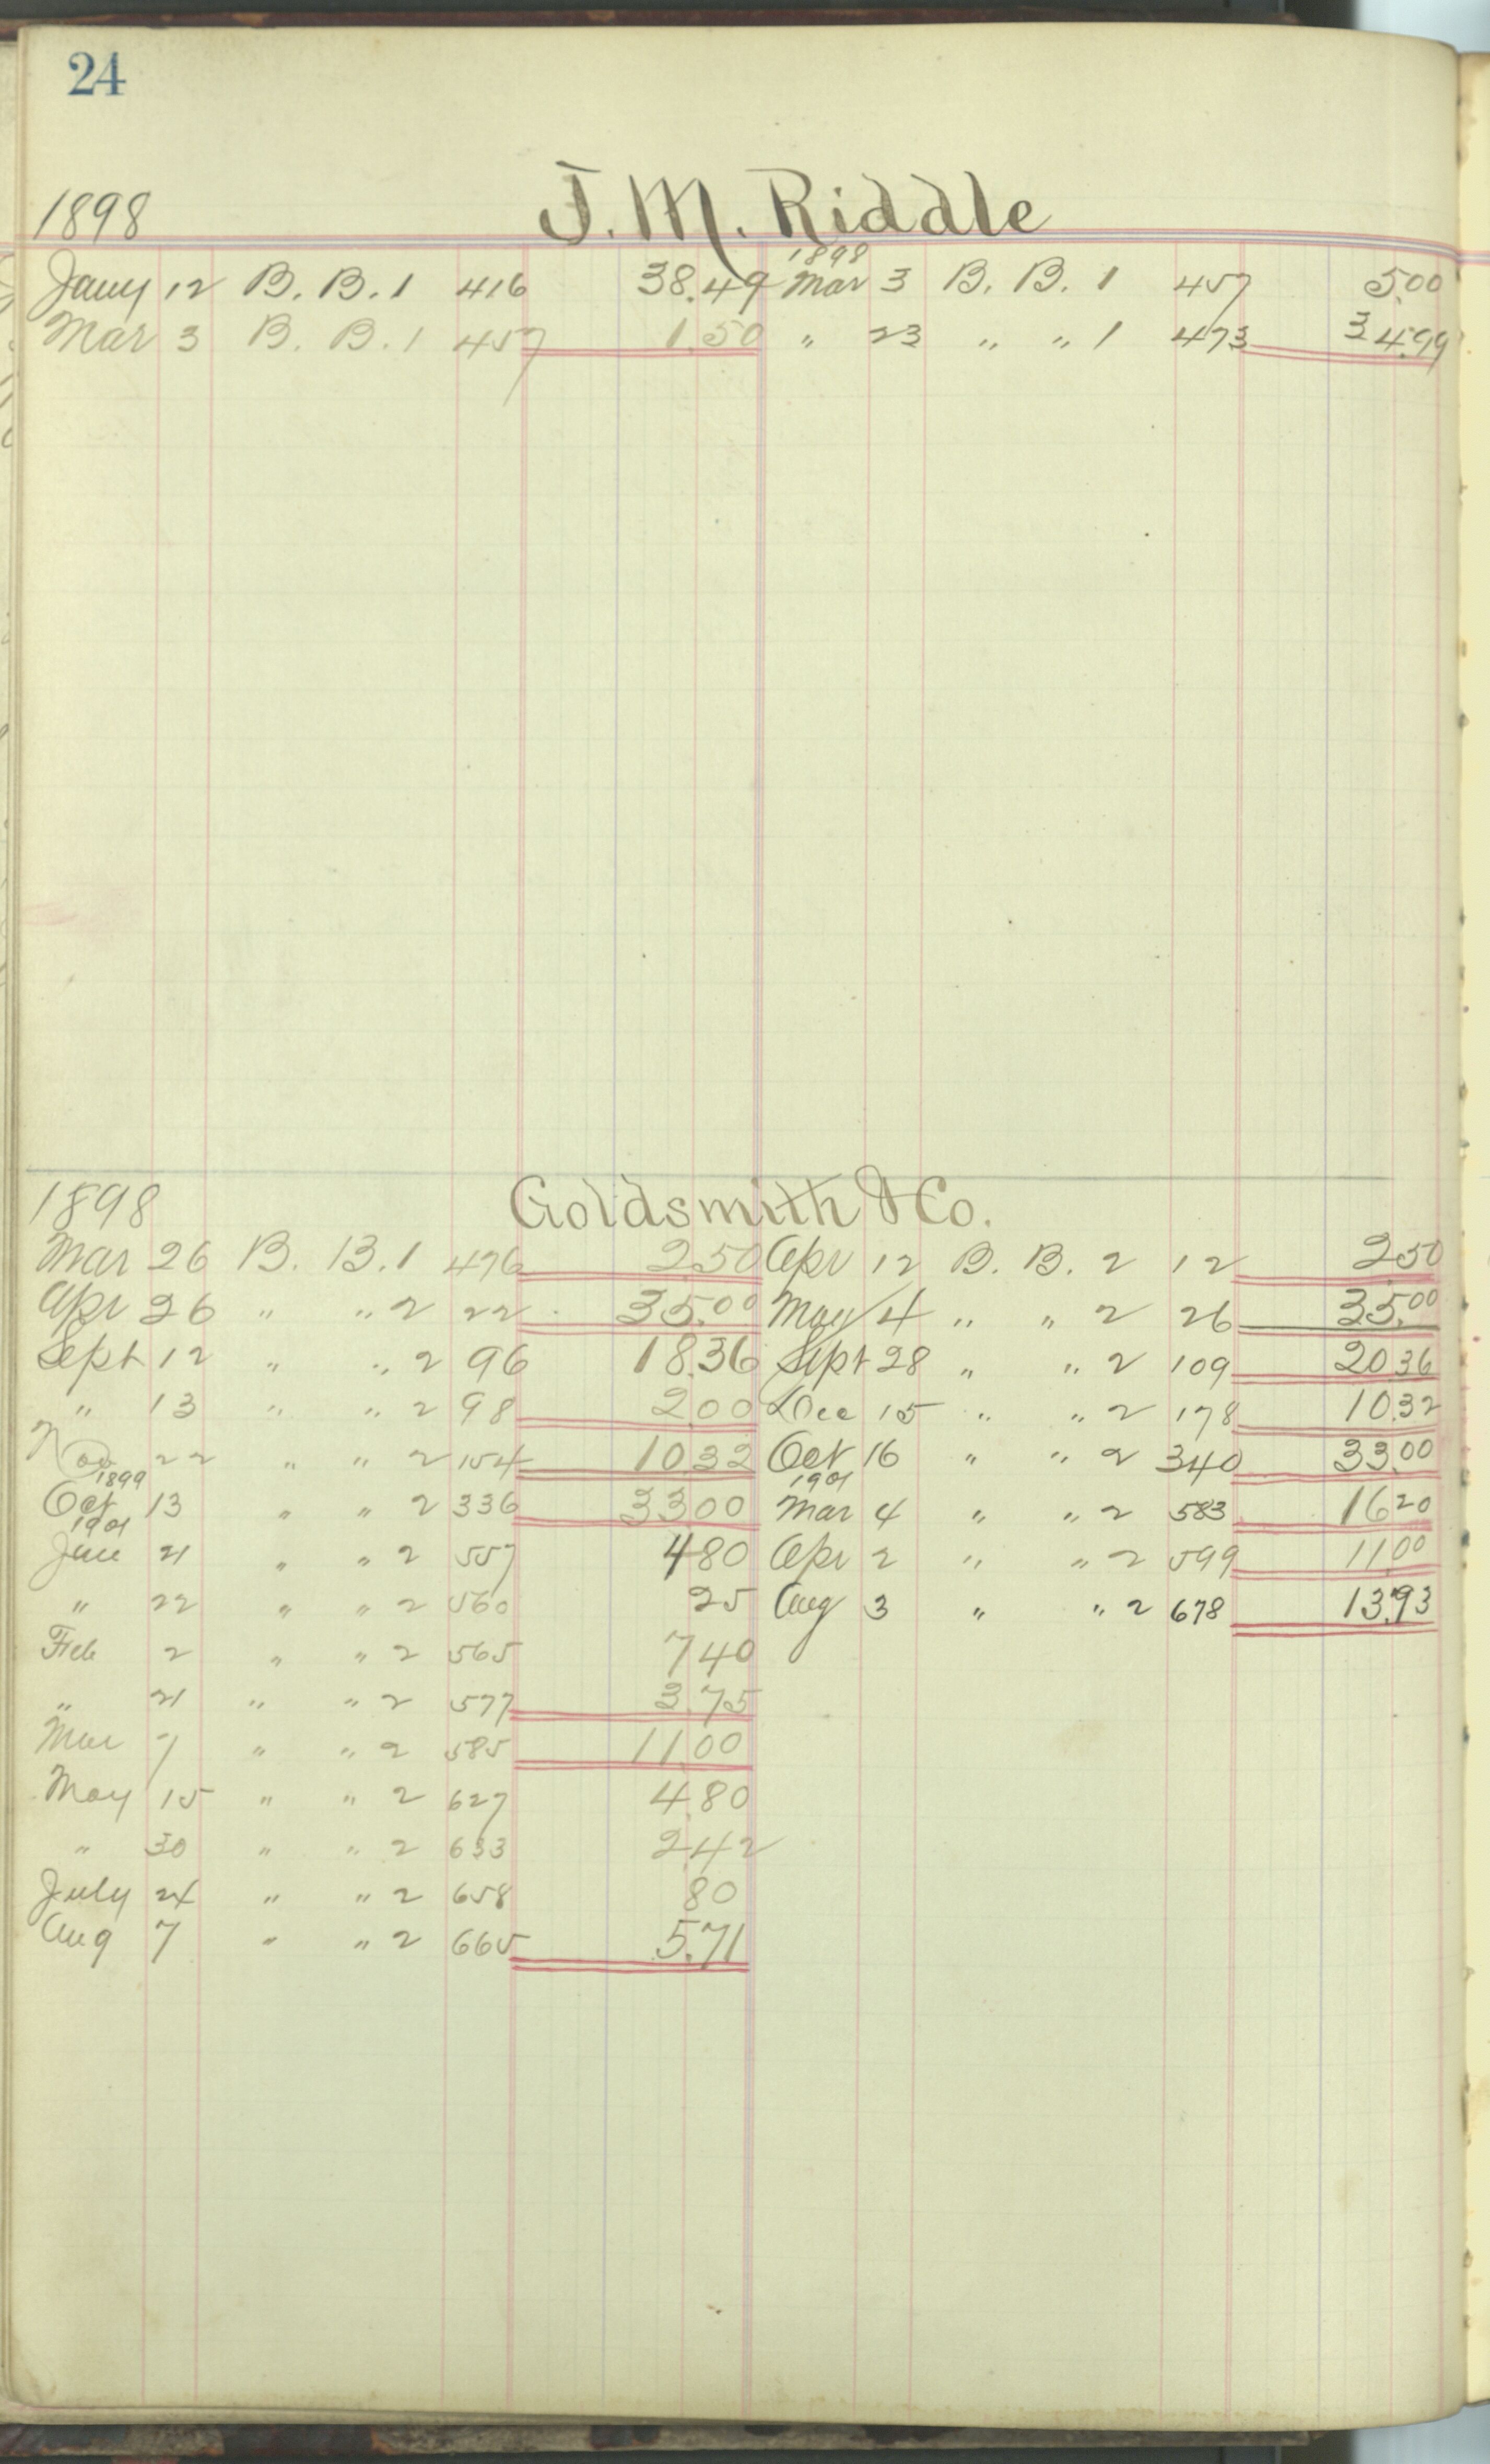 24
1898 J. M. Riddle
1898
Jany 12 B. B. 1 416 38.49 Mar 3 B. B. 1 457 5.00
Mar 3 B. B. 1 457 1.50 " 23 " " 1 473 34.99
1898 Goldsmith & Co.
Mar 26 B. B. 1 476 2.50 Apr 12 B. B. 2 12 2.50
Apr 26 " " 2 22 35.00 May 4 " " 2 26 35.00
Sept 12 " " 2 96 18.36 Sept 28 " " 2 109 20.36
" 13 " " 2 98 2.00 Dec 15 " " 2 178 10.32
Nov 22 " " 2 154 10.32 Oct 16 " " 2 340 33.00
1899 1901
Oct 13 " " 2 336 33.00 Mar 4 " " 2 583 16.20
1901
Jan 21 " " 2 557 4.80 Apr 2 " " 2 599 11.00
" 22 " " 2 560 25 Aug 3 " " 2 678 13.93
Feb 2 " " 2 565 7.40
" 21 " " 2 577 3.75
Mar 7 " " 2 585 11.00
May 15 " " 2 627 4.80
" 30 " " 2 633 2.42
July 24 " " 2 658 80
Aug 7 " " 2 665 5.71